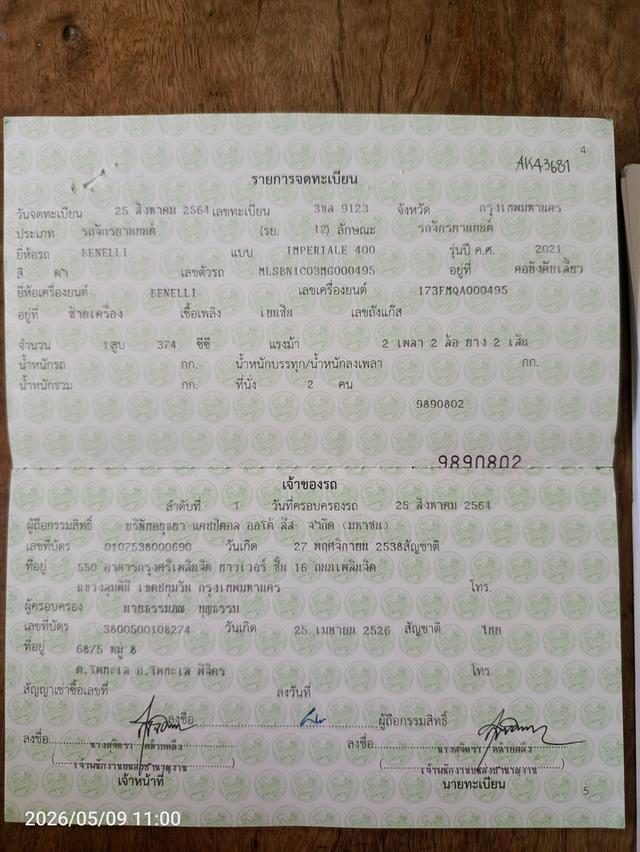 4
AK43681
รายการจดทะเบียน
วันจดทะเบียน 25 สิงหาคม 2564 เลขทะเบียน 3ขล 9123 จังหวัด กรุงเทพมหานคร
ประเภท รถจักรยานยนต์ (รย. 12) ลักษณะ รถจักรยานยนต์
ยี่ห้อรถ BENELLI แบบ IMPERIALE 400 รุ่นปี ค.ศ. 2021
สี ดำ เลขตัวรถ MLSBN1C03MG000495 อยู่ที่ คอบังคับเลี้ยว
ยี่ห้อเครื่องยนต์ BENELLI เลขเครื่องยนต์ 173FMQA000495
อยู่ที่ ซ้ายเครื่อง เชื้อเพลิง เบนซิน เลขถังแก๊ส
จำนวน 1 สูบ 374 ซีซี แรงม้า 2 เพลา 2 ล้อ ยาง 2 เส้น
น้ำหนักรถ กก. น้ำหนักบรรทุก/น้ำหนักลงเพลา กก.
น้ำหนักรวม กก. ที่นั่ง 2 คน
9890802
9890802
เจ้าของรถ
ลำดับที่ 1 วันที่ครอบครองรถ 25 สิงหาคม 2564
ผู้ถือกรรมสิทธิ์ บริษัทอยุธยา แคปปิตอล ออโต้ ลีส จำกัด (มหาชน)
เลขที่บัตร 0107538000690 วันเกิด 27 พฤศจิกายน 2538 สัญชาติ
ที่อยู่ 550 อาคารกรุงศรีเพลินจิต ทาวเวอร์ ชั้น 16 ถนนเพลินจิต
แขวงลุมพินี เขตปทุมวัน กรุงเทพมหานคร โทร.
ผู้ครอบครอง นายธรรมภณ บุญธรรม
เลขที่บัตร 3800500108274 วันเกิด 25 เมษายน 2526 สัญชาติ ไทย
ที่อยู่ 68/5 หมู่ 8
ต.โพทะเล อ.โพทะเล พิจิตร โทร.
สัญญาเช่าซื้อเลขที่ ลงวันที่
ลงชื่อ ผู้ถือกรรมสิทธิ์
ลงชื่อ ลงชื่อ
นางสุจิตรา คล้ายคลึง นางสุจิตรา คล้ายคลึง
(เจ้าพนักงานขนส่งชำนาญงาน) (เจ้าพนักงานขนส่งชำนาญงาน)
เจ้าหน้าที่ นายทะเบียน
5
2026/05/09 11:00